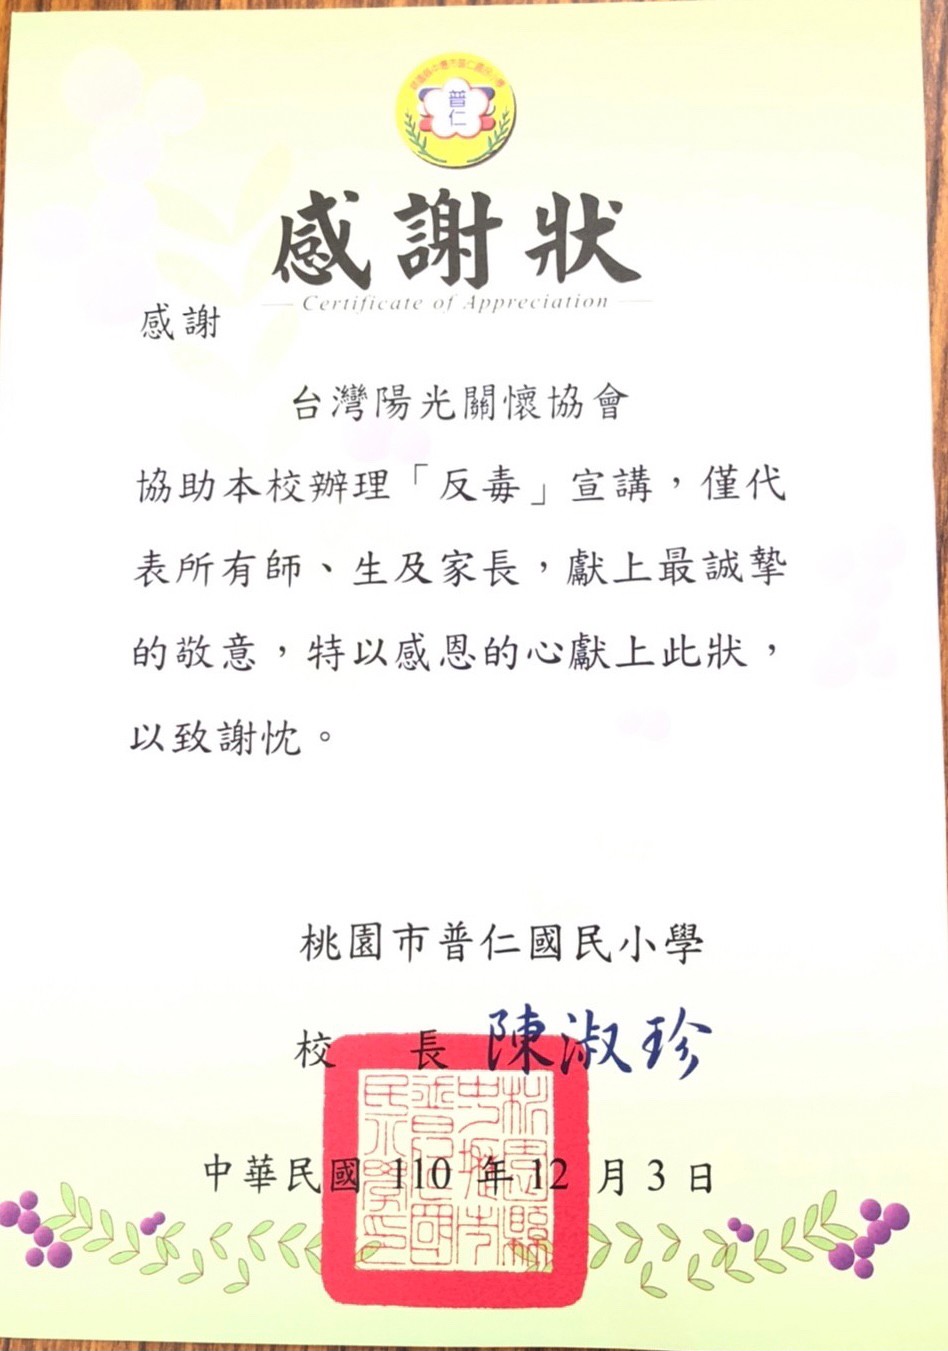 普仁
感謝狀
Certificate of Appreciation
感謝
台灣陽光關懷協會
協助本校辦理「反毒」宣講，僅代
表所有師、生及家長，獻上最誠摯
的敬意，特以感恩的心獻上此狀，
以致謝忱。
桃園市普仁國民小學
校 長 陳淑珍
中華民國 110 年 12 月 3 日